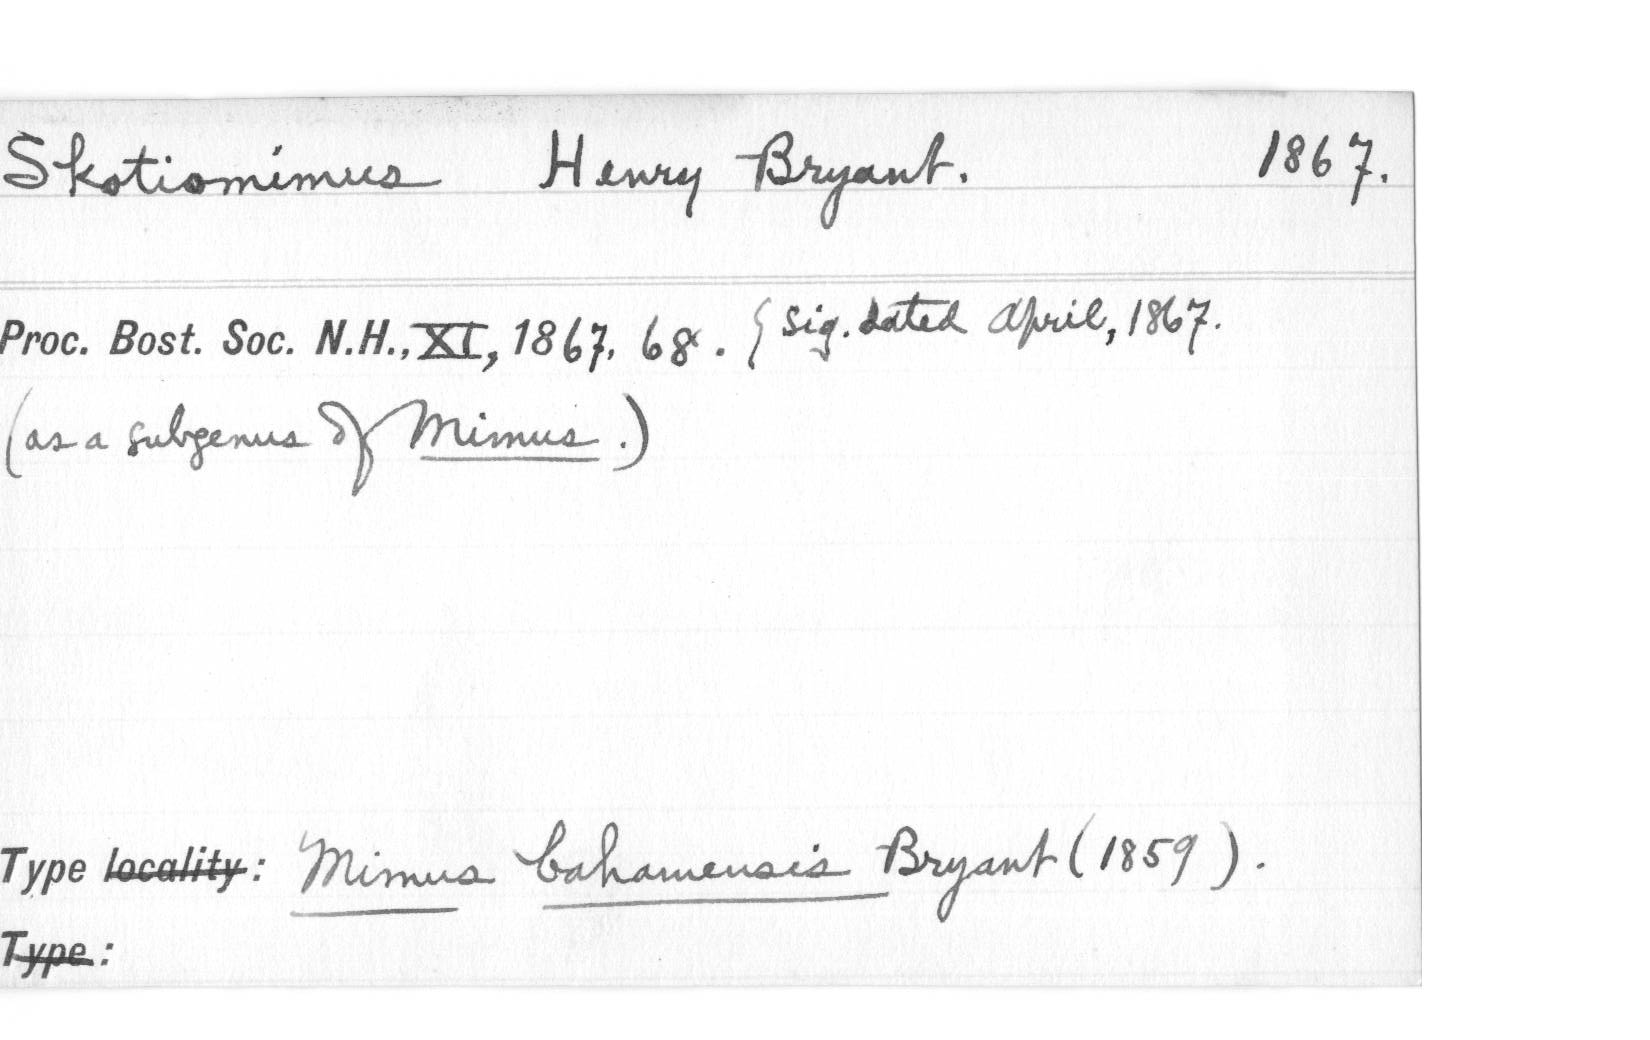 Skotiomimus Henry Bryant. 1867.
Proc. Bost. Soc. N.H., XI, 1867, 68. { Sig. dated April, 1867.
(as a subgenus of Mimus.)
Type locality: Mimus bahamensis Bryant (1859).
Type: